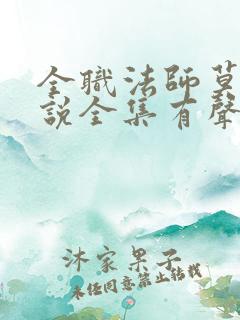 全職法師莫
說全集有聲
沐家果子
未经同意禁止转载